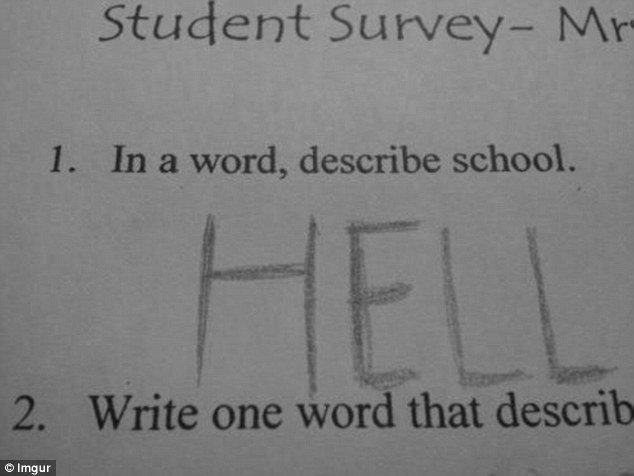 Student Survey- Mr
1. In a word, describe school.
HELL
2. Write one word that describ
© Imgur